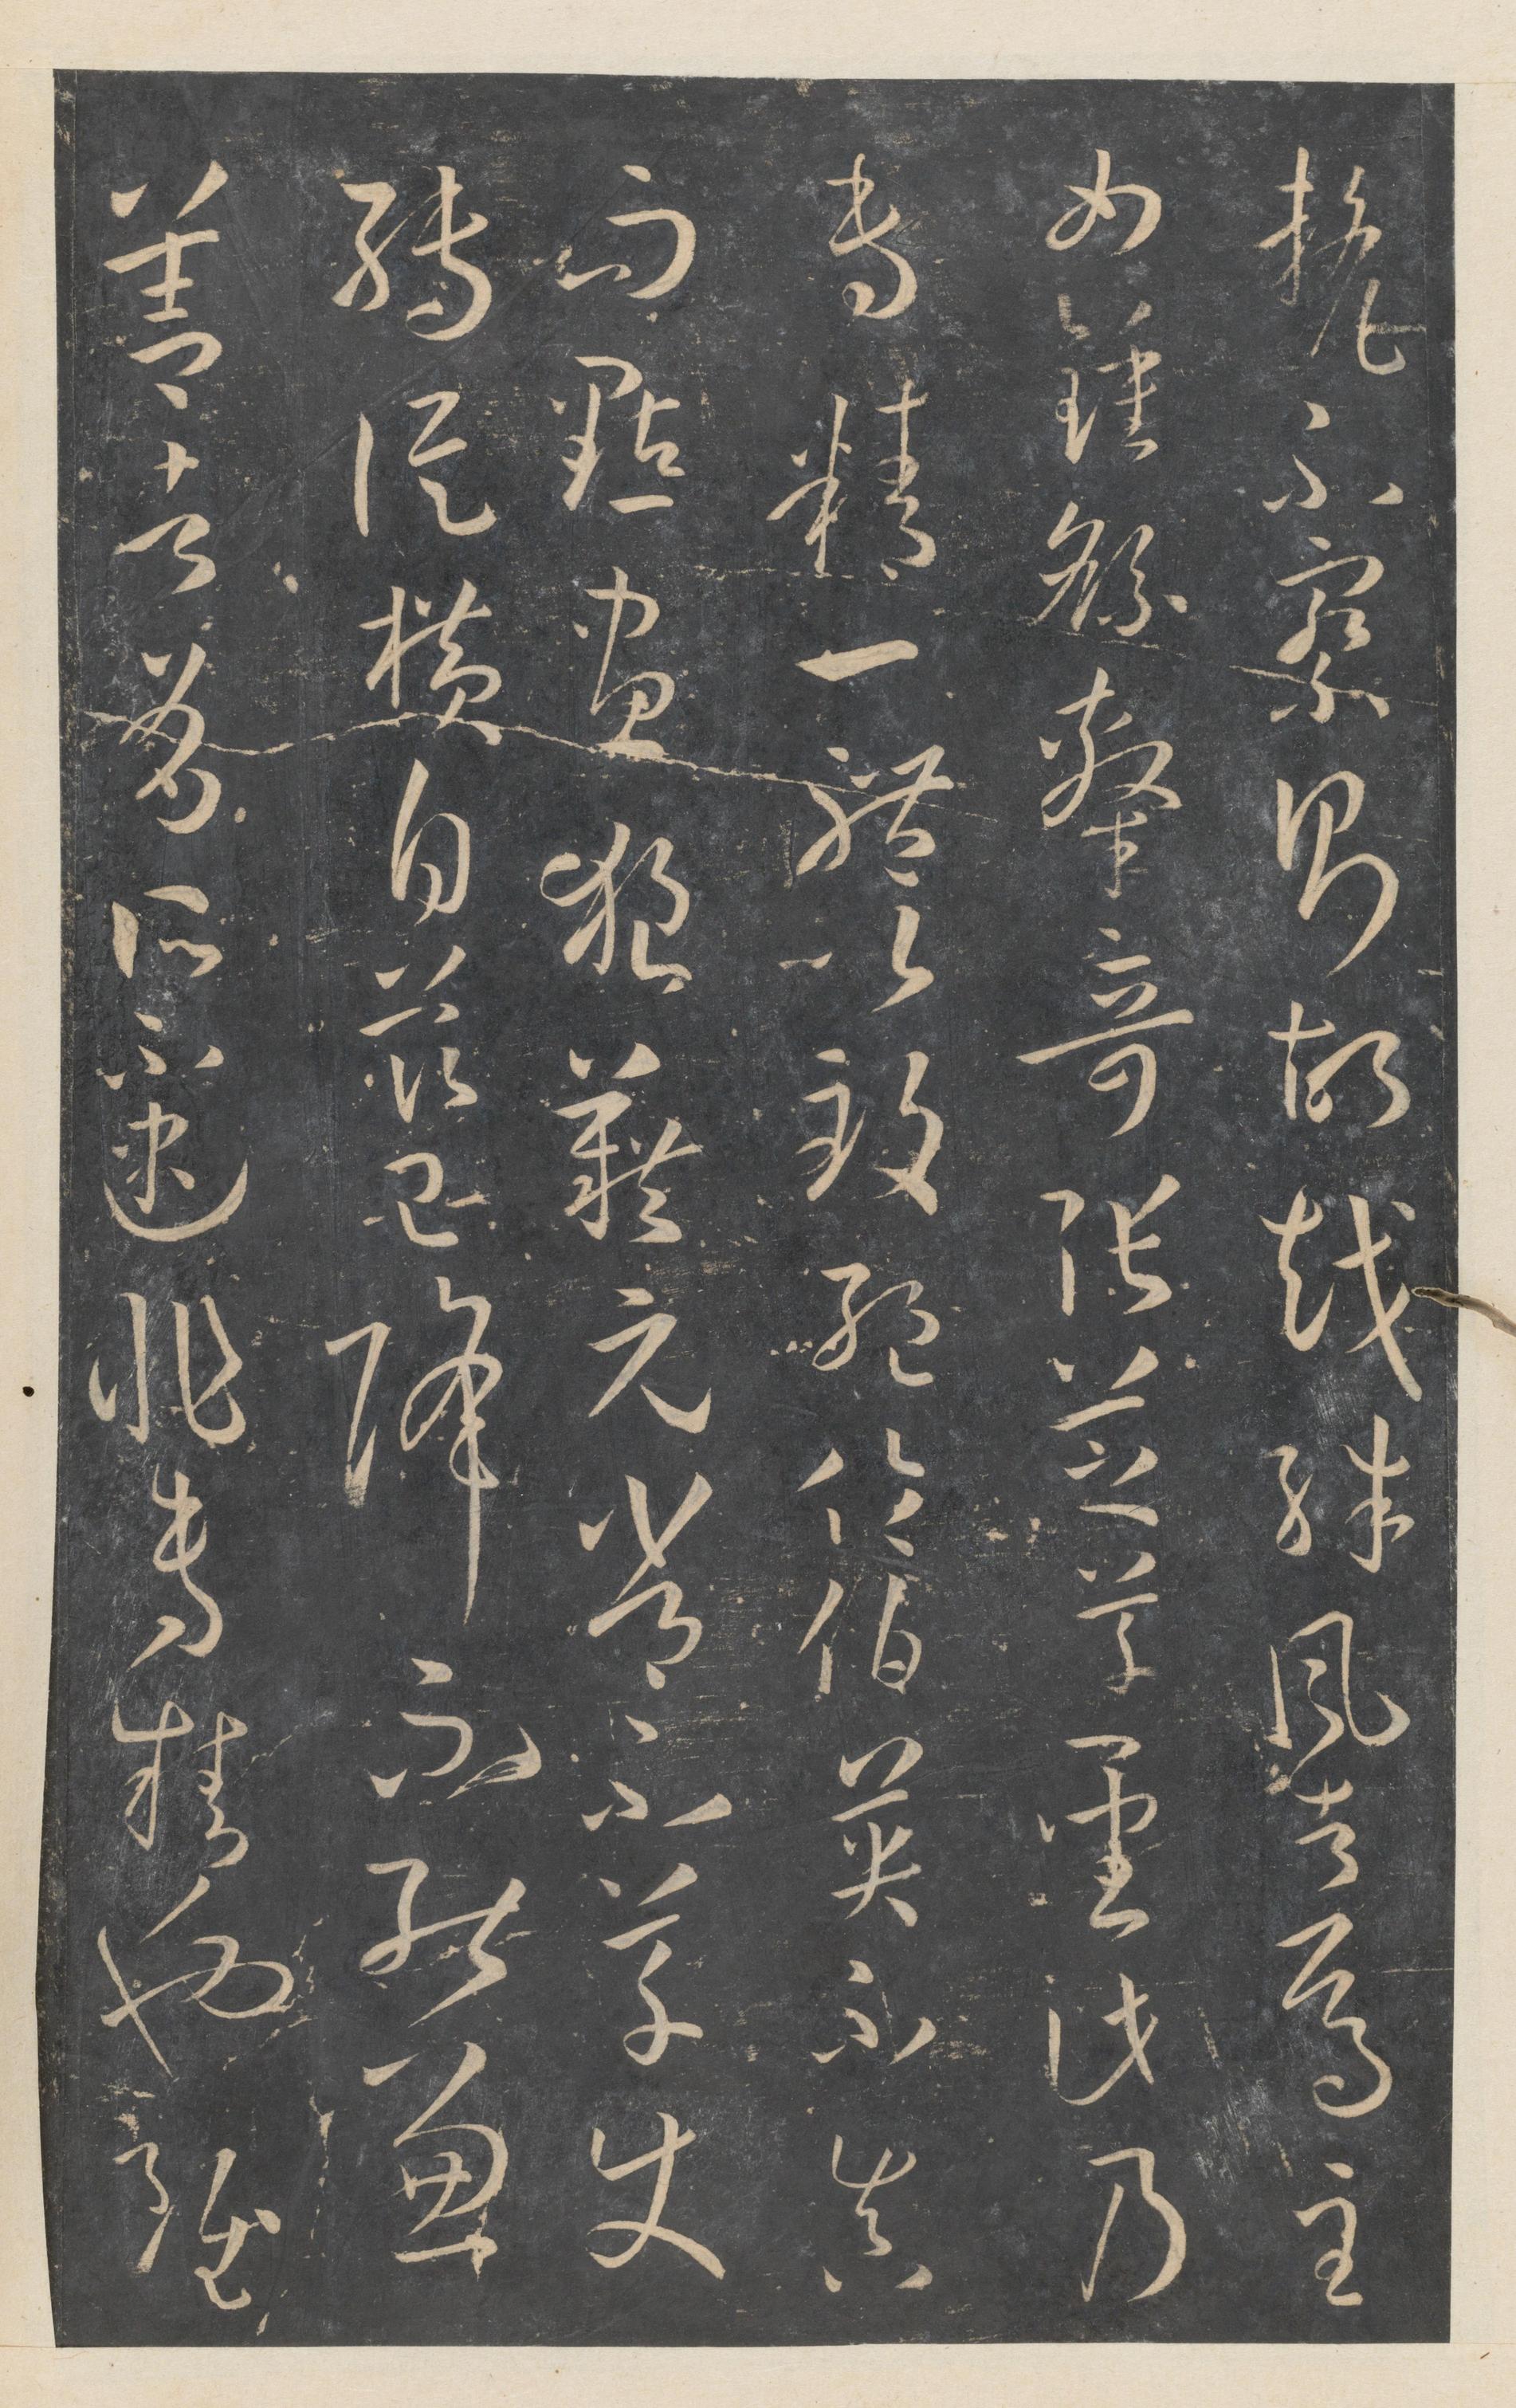 氂不察則胡越殊風者焉至
如鍾繇隸奇張芝草聖此乃
專精一體以致絕倫伯英不真
而點畫狼藉元常不草使
轉縱橫自茲已降不能兼
善者有所不逮非專精也雖